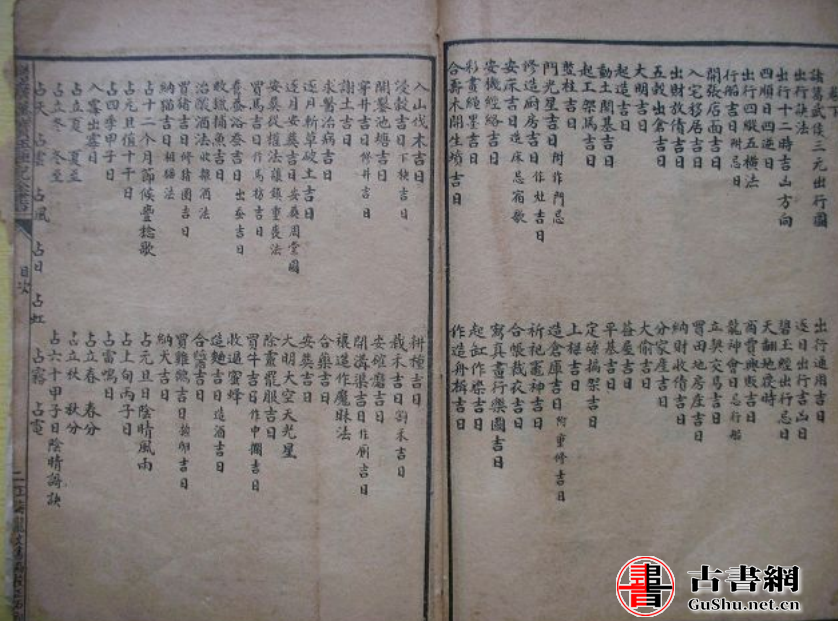 卷下
諸葛武侯三元出行圖
出行訣法
出行十二時吉凶方向
四順日四逆日
出行四縱五橫法
行船吉日 附忌日
開張店面吉日
入宅移居吉日
出財放債吉日
五穀出倉吉日
大明吉日
起造吉日
動土開基吉日
起工架馬吉日
竪柱吉日
門光星吉日 附作門忌
修造厨房吉日 作灶吉日
安床吉日 造床忌宿歌
安機經絡吉日
彩畫繩墨吉日
合壽木開生墳吉日
出行通用吉日
逐日出行吉凶日
碧玉經出行忌日
天翻地覆時
商賈興販吉日
龍神會日 忌行船
立契交易吉日
買田地房產吉日
納財收債吉日
分家產吉日
大偷吉日
蓋屋吉日
平基吉日
定磉搧架吉日
上樑吉日
造倉庫吉日 附重修吉日
祈祀竈神吉日
合帳裁衣吉日
寫真畫行樂圖吉日
起缸作染吉日
作造舟楫吉日
入山伐木吉日
浸穀吉日 下秧吉日
開鑿池塘吉日
穿井吉日 修井吉日
謝土吉日
求醫治病吉日
逐月斬草破土吉日
逐月安葬吉日 安葬周堂圖
安葬從權法 禳鎮重喪法
買馬吉日 作馬枋吉日
養蚕浴蚕吉日 出蚕吉日
畋獵捕魚吉日
治酸酒法 收雜酒法
買猪吉日 修猪圈吉日
納猫吉日 相猫法
占十二个月節候豐稔歌
占元旦值十干日
占四季甲子日
入霉出霉日
占立夏 夏至
占立冬 冬至
占天 占雲 占風 占日 占虹 占霧 占電
耕種吉日
栽禾吉日 割禾吉日
安碓磨吉日
開溝渠吉日 作厠吉日
禳造作魘昧法
合藥吉日
安葬吉日
大明大空天光星
除靈罷服吉日
買牛吉日 作牛欄吉日
收過蜜蜂
造麯吉日 造酒吉日
合醬吉日
買雞鵝吉日 抱卵吉日
納犬吉日
占元旦日陰晴風雨
占上旬丙子日
占雷鳴日
占立春 春分
占立秋 秋分
占六十甲子日陰晴謌訣
目次
二
古書網
GuShu.net.cn